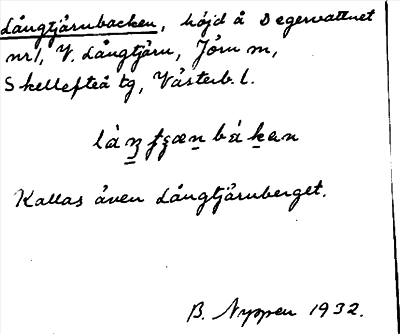 Långtjärnbacken, höjd å Degervattnet
nr 1, V. Långtjärn, Jörn sn,
Skellefteå tg, Västerb. l.
Kallas även Långtjärnberget.
B. Nyppen 1932.